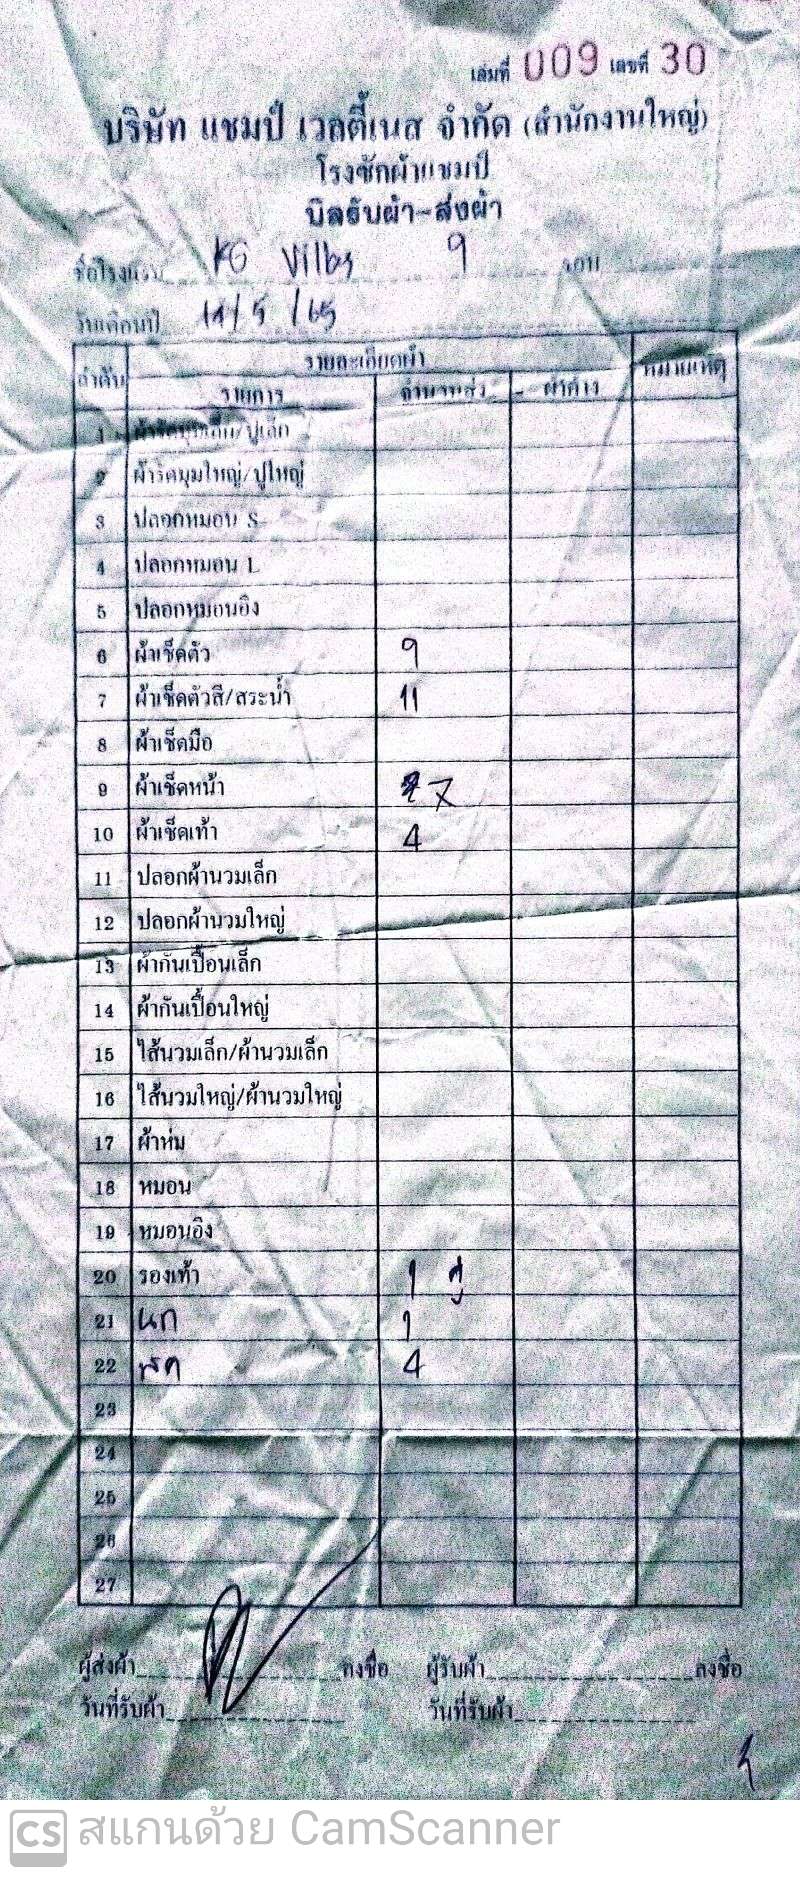 เล่มที่ 009 เลขที่ 30
บริษัท แชมป์ เวลตี้เนส จำกัด (สำนักงานใหญ่)
โรงซักผ้าแชมป์
บิลรับผ้า-ส่งผ้า
ชื่อโรงแรม KG Villas 9
วันเดือนปี 11/5/65
ลำดับ รายละเอียดผ้า หมายเหตุ
รายการ จำนวนส่ง ผ้าค้าง
1 ผ้ารัดมุมเล็ก/ปูเล็ก
2 ผ้ารัดมุมใหญ่/ปูใหญ่
3 ปลอกหมอน S
4 ปลอกหมอน L
5 ปลอกหมอนอิง
6 ผ้าเช็ดตัว 9
7 ผ้าเช็ดตัวสี/สระน้ำ 11
8 ผ้าเช็ดมือ
9 ผ้าเช็ดหน้า
10 ผ้าเช็ดเท้า 4
11 ปลอกผ้านวมเล็ก
12 ปลอกผ้านวมใหญ่
13 ผ้ากันเปื้อนเล็ก
14 ผ้ากันเปื้อนใหญ่
15 ไส้นวมเล็ก/ผ้านวมเล็ก
16 ไส้นวมใหญ่/ผ้านวมใหญ่
17 ผ้าห่ม
18 หมอน
19 หมอนอิง
20 รองเท้า 1 คู่
21 1
22 4
23
24
25
26
27
ผู้ส่งผ้า ลงชื่อ ผู้รับผ้า ลงชื่อ
วันที่รับผ้า วันที่รับผ้า
CS สแกนด้วย CamScanner